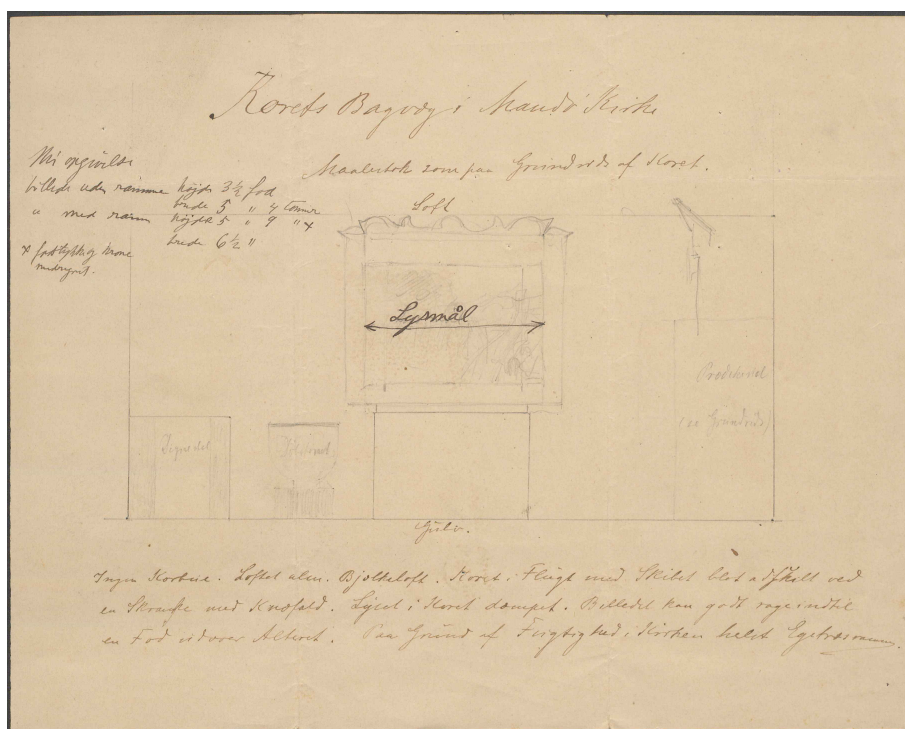 Korets Bagvæg i Mandø Kirke
Maalestok som paa Grundrids af Koret.
Min opgivelse
billede uden ramme højde 3½ fod
brede 5 " 4 tommer
" med ramm højde 5 " 9 " x
brede 6½ "
x fodstykke og krone
medregnet.
Loft
Lysmål
Prædikestol
(se Grundrids)
Gulv.
Ingen Korbue. Loftet alm. Bjælkeloft. Koret i Flugt med Skibet blot adskilt ved
en Skranke med Knæfald. Lyset i Koret dæmpet. Billedet kan godt rage indtil
en Fod udover Alteret. Paa Grund af Fugtighed i Kirken helst Egetræsramme.